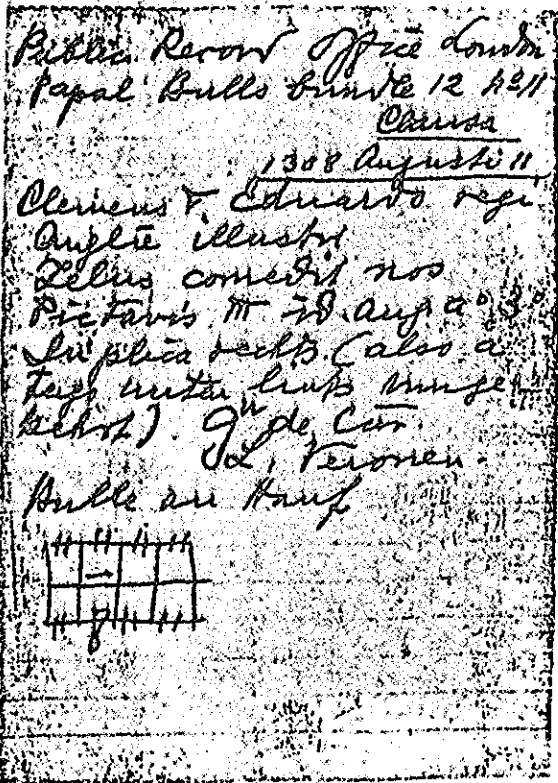 Public Record Office London
Papal Bulls bundle 12 No 11
Clausa
1308 Augusti 11
Clemens V Eduardo regi
Anglie illustri
Zelus comedit nos
Pictavis III id. aug a° 3°
In plica rechts (also a
tergo unten links umge-
kehrt) G de Car.
L. Veronen.
Bulle an Hanf